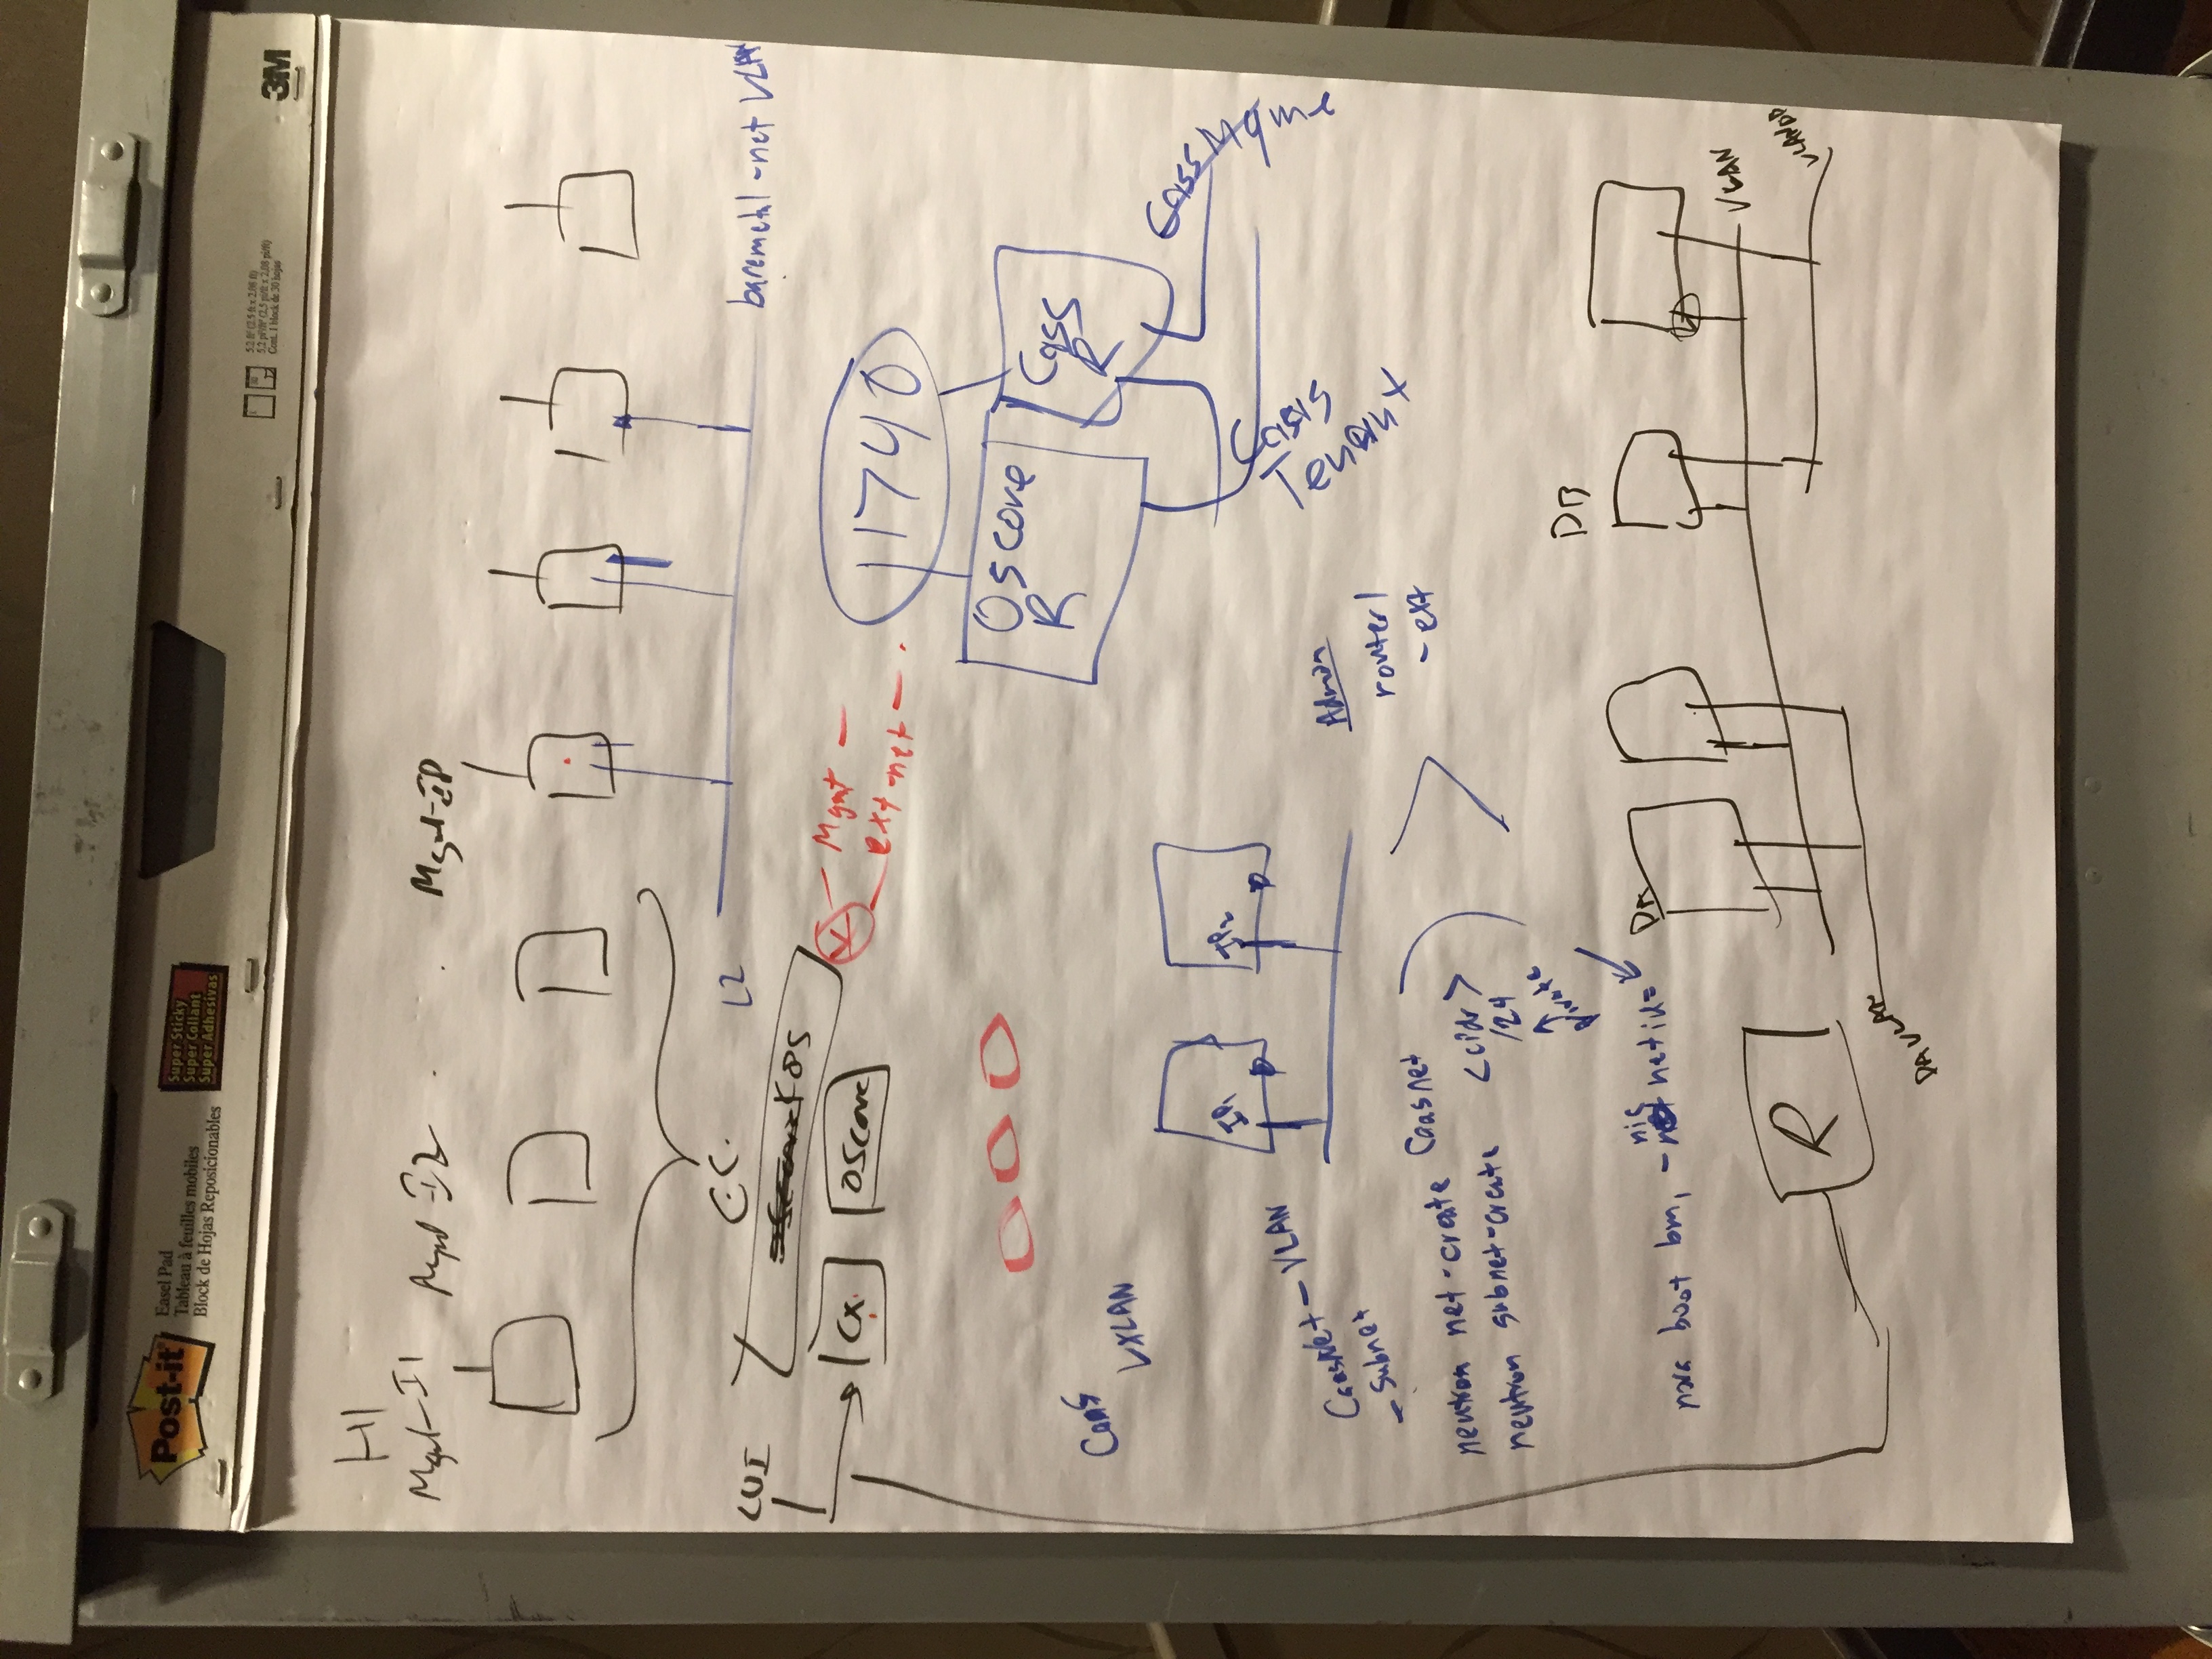 Post-it
Easel Pad
Tableau à feuilles mobiles
Block de Hojas Reposicionables
Super Sticky
Super Collant
Super Adhesivas
5.2 ft² (2.5 ft x 2.08 ft)
5,2 pi²/ft² (2,5 pi/ft x 2,08 pi/ft)
Cont. 1 block de 30 hojas
3M
HI
Mgmt-I1
Mgmt I2
Mgmt-IP
C.C.
L2
baremetal-net VLAN
CUI
K8S
CX
OScore
Mgmt
ext-net
11740
OScore
R
Cass
R
Caas
VXLAN
IP1
IP2
CaasNet - VLAN
- Subnet
Cass Mgmt
Casis
Tenant
Admin
router1
- ext
neutron net-create Caasnet
neutron subnet-create <cidr>
/24
private
nova boot bm, - nic
DA
DB
VLAN
VLANDB
R
DAVLAN